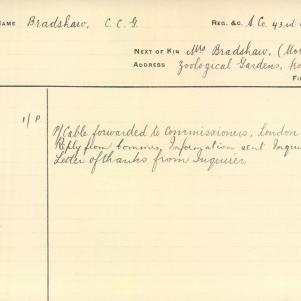 NAME Bradshaw, C. C. G. REG. &C. A. Co. 43rd
NEXT OF KIN Mrs Bradshaw, (Mot
ADDRESS Zoological Gardens,
FI
1/P
Cable forwarded to Commissioners, London
Reply from Commrs, Information sent Inqui
Letter of thanks from Inquirer